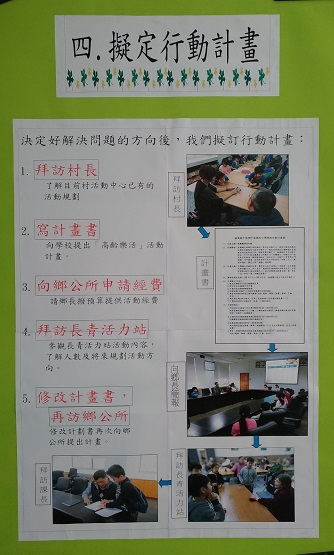 四.擬定行動計畫
決定好解決問題的方向後，我們擬訂行動計畫：
1. 拜訪村長
了解目前村活動中心已有的
活動規劃
2. 寫計畫書
向學校提出「高齡樂活」活動
計畫。
3. 向鄉公所申請經費
請鄉長撥預算提供活動經費
4. 拜訪長青活力站
參觀長青活力站活動內容，
了解人數及將來規劃活動方
向。
5. 修改計畫書，
再訪鄉公所
修改計劃書再次向鄉
公所提出計畫。
拜訪村長
計畫書
向鄉長簡報
拜訪長青活力站
拜訪課長